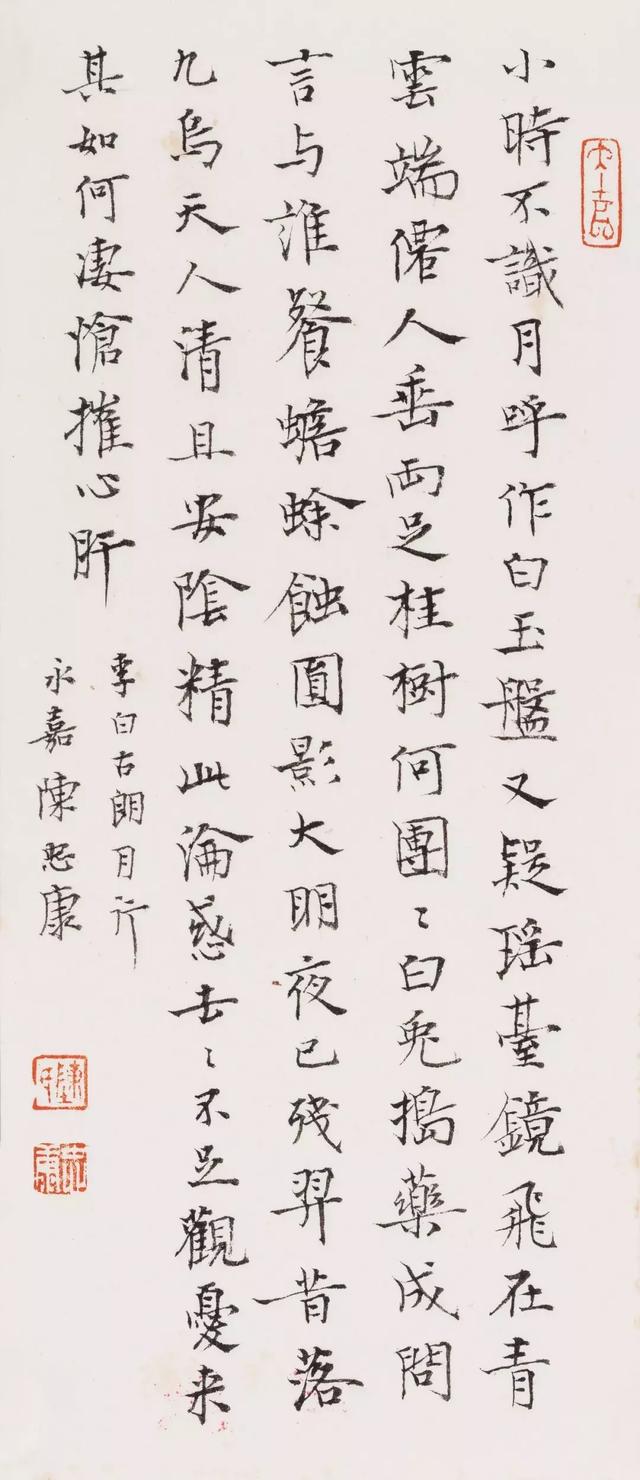 小時不識月呼作白玉盤又疑瑶臺鏡飛在青
雲端僊人垂兩足桂樹何團〻白兎搗藥成問
言与誰餐蟾蜍蝕圓影大明夜已殘羿昔落
九烏天人清且安陰精此淪惑去〻不足觀憂来
其如何凄愴摧心肝
李白古朗月行
永嘉陳思康